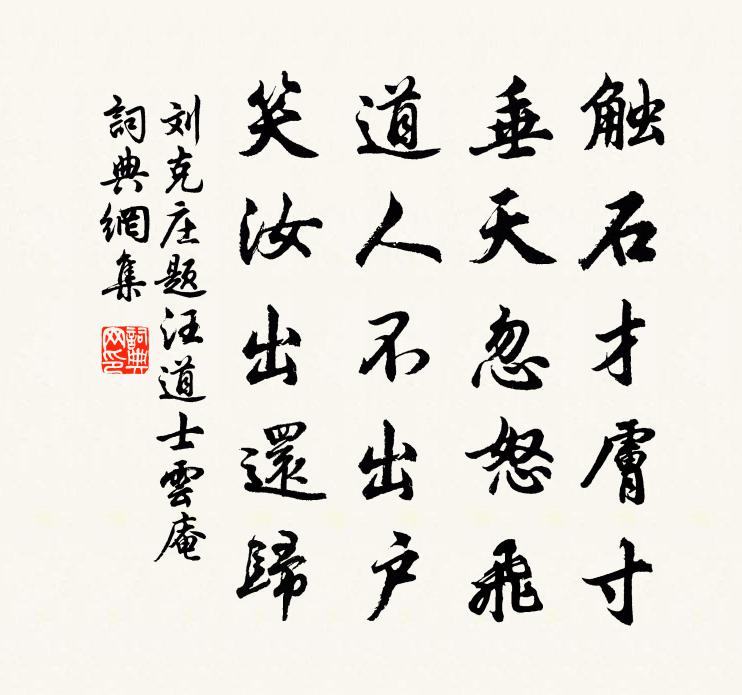 触石才膚寸
垂天忽怒飛
道人不出户
笑汝出還歸
刘克庄题汪道士雲庵
詞典網集
詞典网印